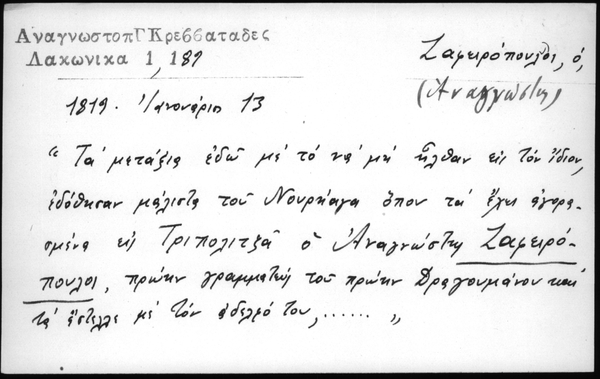 ΑναγνωστοπΓΚρεββαταδες
Λακωνικα 1, 189
Ζαφειρόπουλος, ὁ,
(Ἀναγνώστης)
1819. Ἰανουάριος 13
"Τὰ μετάξια ἐδῶ μὲ τὸ νὰ μὴ ἦλθαν εἰς τὸν ἴδιον,
ἐδόθησαν μάλιστα τοῦ Νουρήαγα ὅπου τὰ ἔχει ἀγορα-
σμένα εἰς Τριπολιτζᾶ ὁ Ἀναγνώστης Ζαφειρό-
πουλος, πρώην γραμματεὺς τοῦ πρώην Δραγουμάνου καὶ
τὰ ἔστελλε μὲ τὸν ἀδελφό του, ...... "